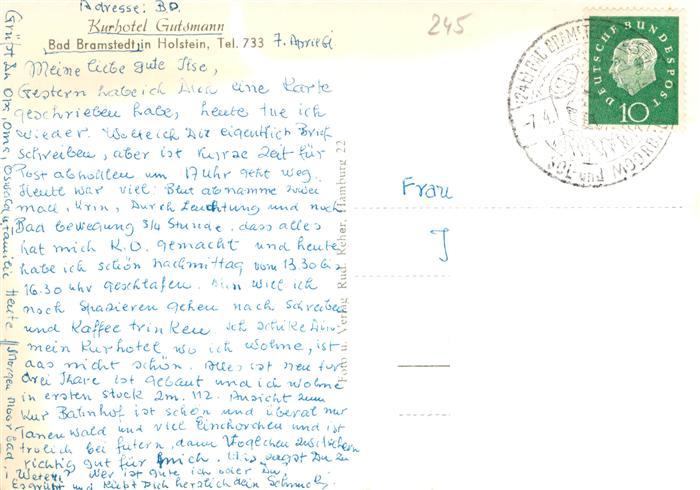 Adresse: B.D.
Kurhotel Gutsmann
Bad Bramstedt in Holstein, Tel. 733
7. April 61
245
Meine liebe gute Ilse,
Gestern habe ich Dich eine Karte
geschrieben habe, heute tue ich
wieder. Wollte ich Dir eigentlich Brief
schreiben, aber ist kurze Zeit für
Post abhollen um 17 Uhr geht weg.
Heute war viel Blut abnamme zwei
mall, Urin, Durch Leuchtung und noch
Bad bewegung 3/4 Stunde. dass alles
hat mich K.O. gemacht und heute
habe ich schön nachmittag vom 13.30 bis
16.30 uhr geschlafen. Nun will ich
noch Spazieren gehen nach Schreiben
und Kaffee trinken Ich schike Dir
mein Kurhotel wo ich wohne, ist
das nicht schön. Alles ist neu für
drei Jhare ist gebaut und ich wohne
in ersten stock Zm. 112. Ansicht zum
Kur Bahnhof ist schön und überal nur
Tanen Wald und viel Einchorchen und ist
frolich bei futern, dann Voglchen zwitschern
richtig gut für mich. Was sagst Du zu
Wetter? Wer ist gute ich oder Du,
Es grüßt und küßt Dich herzlich dein
Heute / Morgen Moor bad,
Foto u. Verlag Rud. Reher, Hamburg 22
Frau
J
DEUTSCHE BUNDESPOST
10